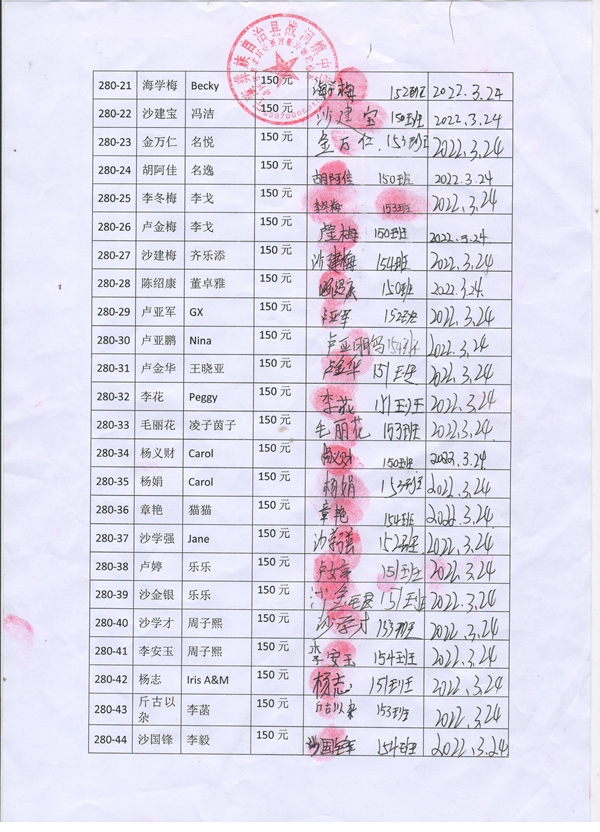 族自治县战河镇中
280-21 海学梅 Becky 150 元 海学梅 152班 2022.3.24
280-22 沙建宝 冯洁 150 元 沙建宝 150班 2022.3.24
280-23 金万仁 名悦 150 元 金万仁 153班 2022.3.24
280-24 胡阿佳 名逸 150 元 胡阿佳 150班 2022.3.24
280-25 李冬梅 李戈 150 元 李冬梅 153班 2022.3.24
280-26 卢金梅 李戈 150 元 卢金梅 150班 2022.3.24
280-27 沙建梅 齐乐添 150 元 沙建梅 154班 2022.3.24
280-28 陈绍康 董卓雅 150 元 150班 2022.3.24
280-29 卢亚军 GX 150 元 卢亚军 152班 2022.3.24
280-30 卢亚鹏 Nina 150 元 卢亚 154班 2022.3.24
280-31 卢金华 王晓亚 150 元 卢金华 151班 2022.3.24
280-32 李花 Peggy 150 元 李花 151班 2022.3.24
280-33 毛丽花 凌子茵子 150 元 毛丽花 153班 2022.3.24
280-34 杨义财 Carol 150 元 杨义财 150班 2022.3.24
280-35 杨娟 Carol 150 元 杨娟 152班 2022.3.24
280-36 章艳 猫猫 150 元 章艳 154班 2022.3.24
280-37 沙学强 Jane 150 元 沙学强 152班 2022.3.24
280-38 卢婷 乐乐 150 元 卢婷 151班 2022.3.24
280-39 沙金银 乐乐 150 元 沙金银 151班 2022.3.24
280-40 沙学才 周子熙 150 元 沙学才 153班 2022.3.24
280-41 李安玉 周子熙 150 元 李安玉 154班 2022.3.24
280-42 杨志 Iris A&M 150 元 杨志 151班 2022.3.24
280-43 斤古以杂 李菡 150 元 斤古以杂 153班 2022.3.24
280-44 沙国锋 李毅 150 元 沙国锋 154班 2022.3.24